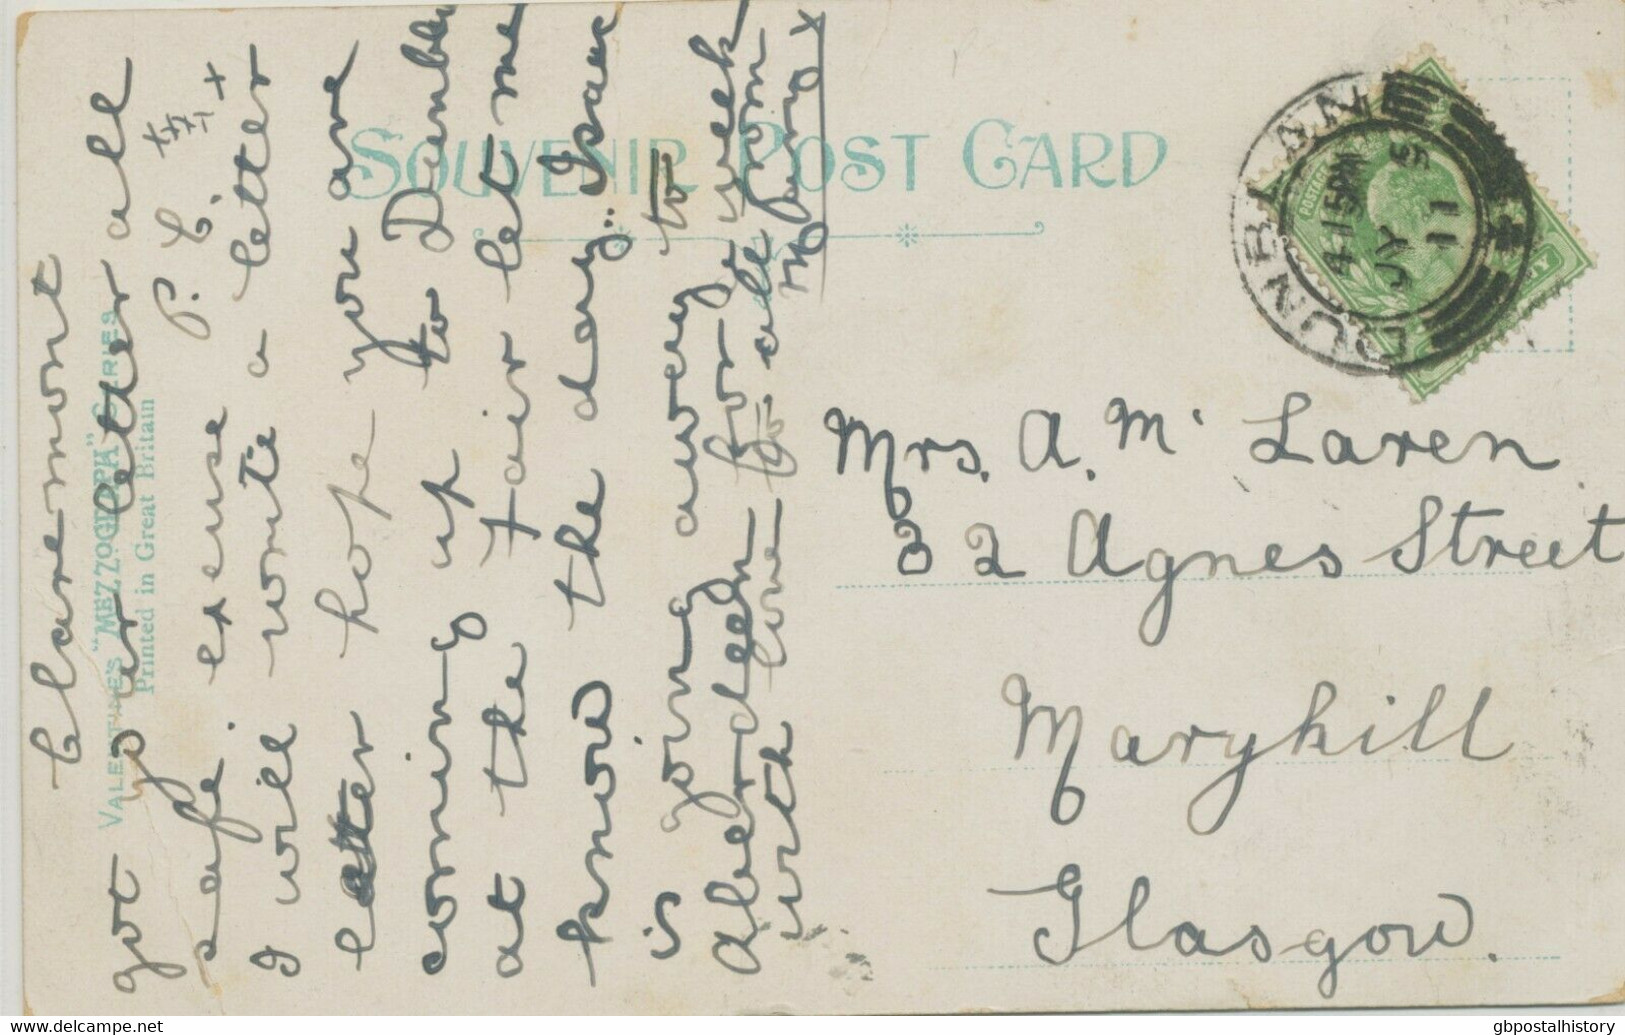 Claremont
got your letter all
safe. excuse P. C.
I will write a letter
letter hope you are
coming up to Dunblane
at the Fair let me
know the day. Isaac
is going away to
Aberdeen for a week
with love to all from
Mary x
SOUVENIR POST CARD
VALENTINE'S "MEZZOGRAPH" SERIES
Printed in Great Britain
DUNBLANE
4.15PM
JY 5
11
Mrs. A. Mc Laren
32 Agnes Street
Maryhill
Glasgow.
www.delcampe.net
gbpostalhistory